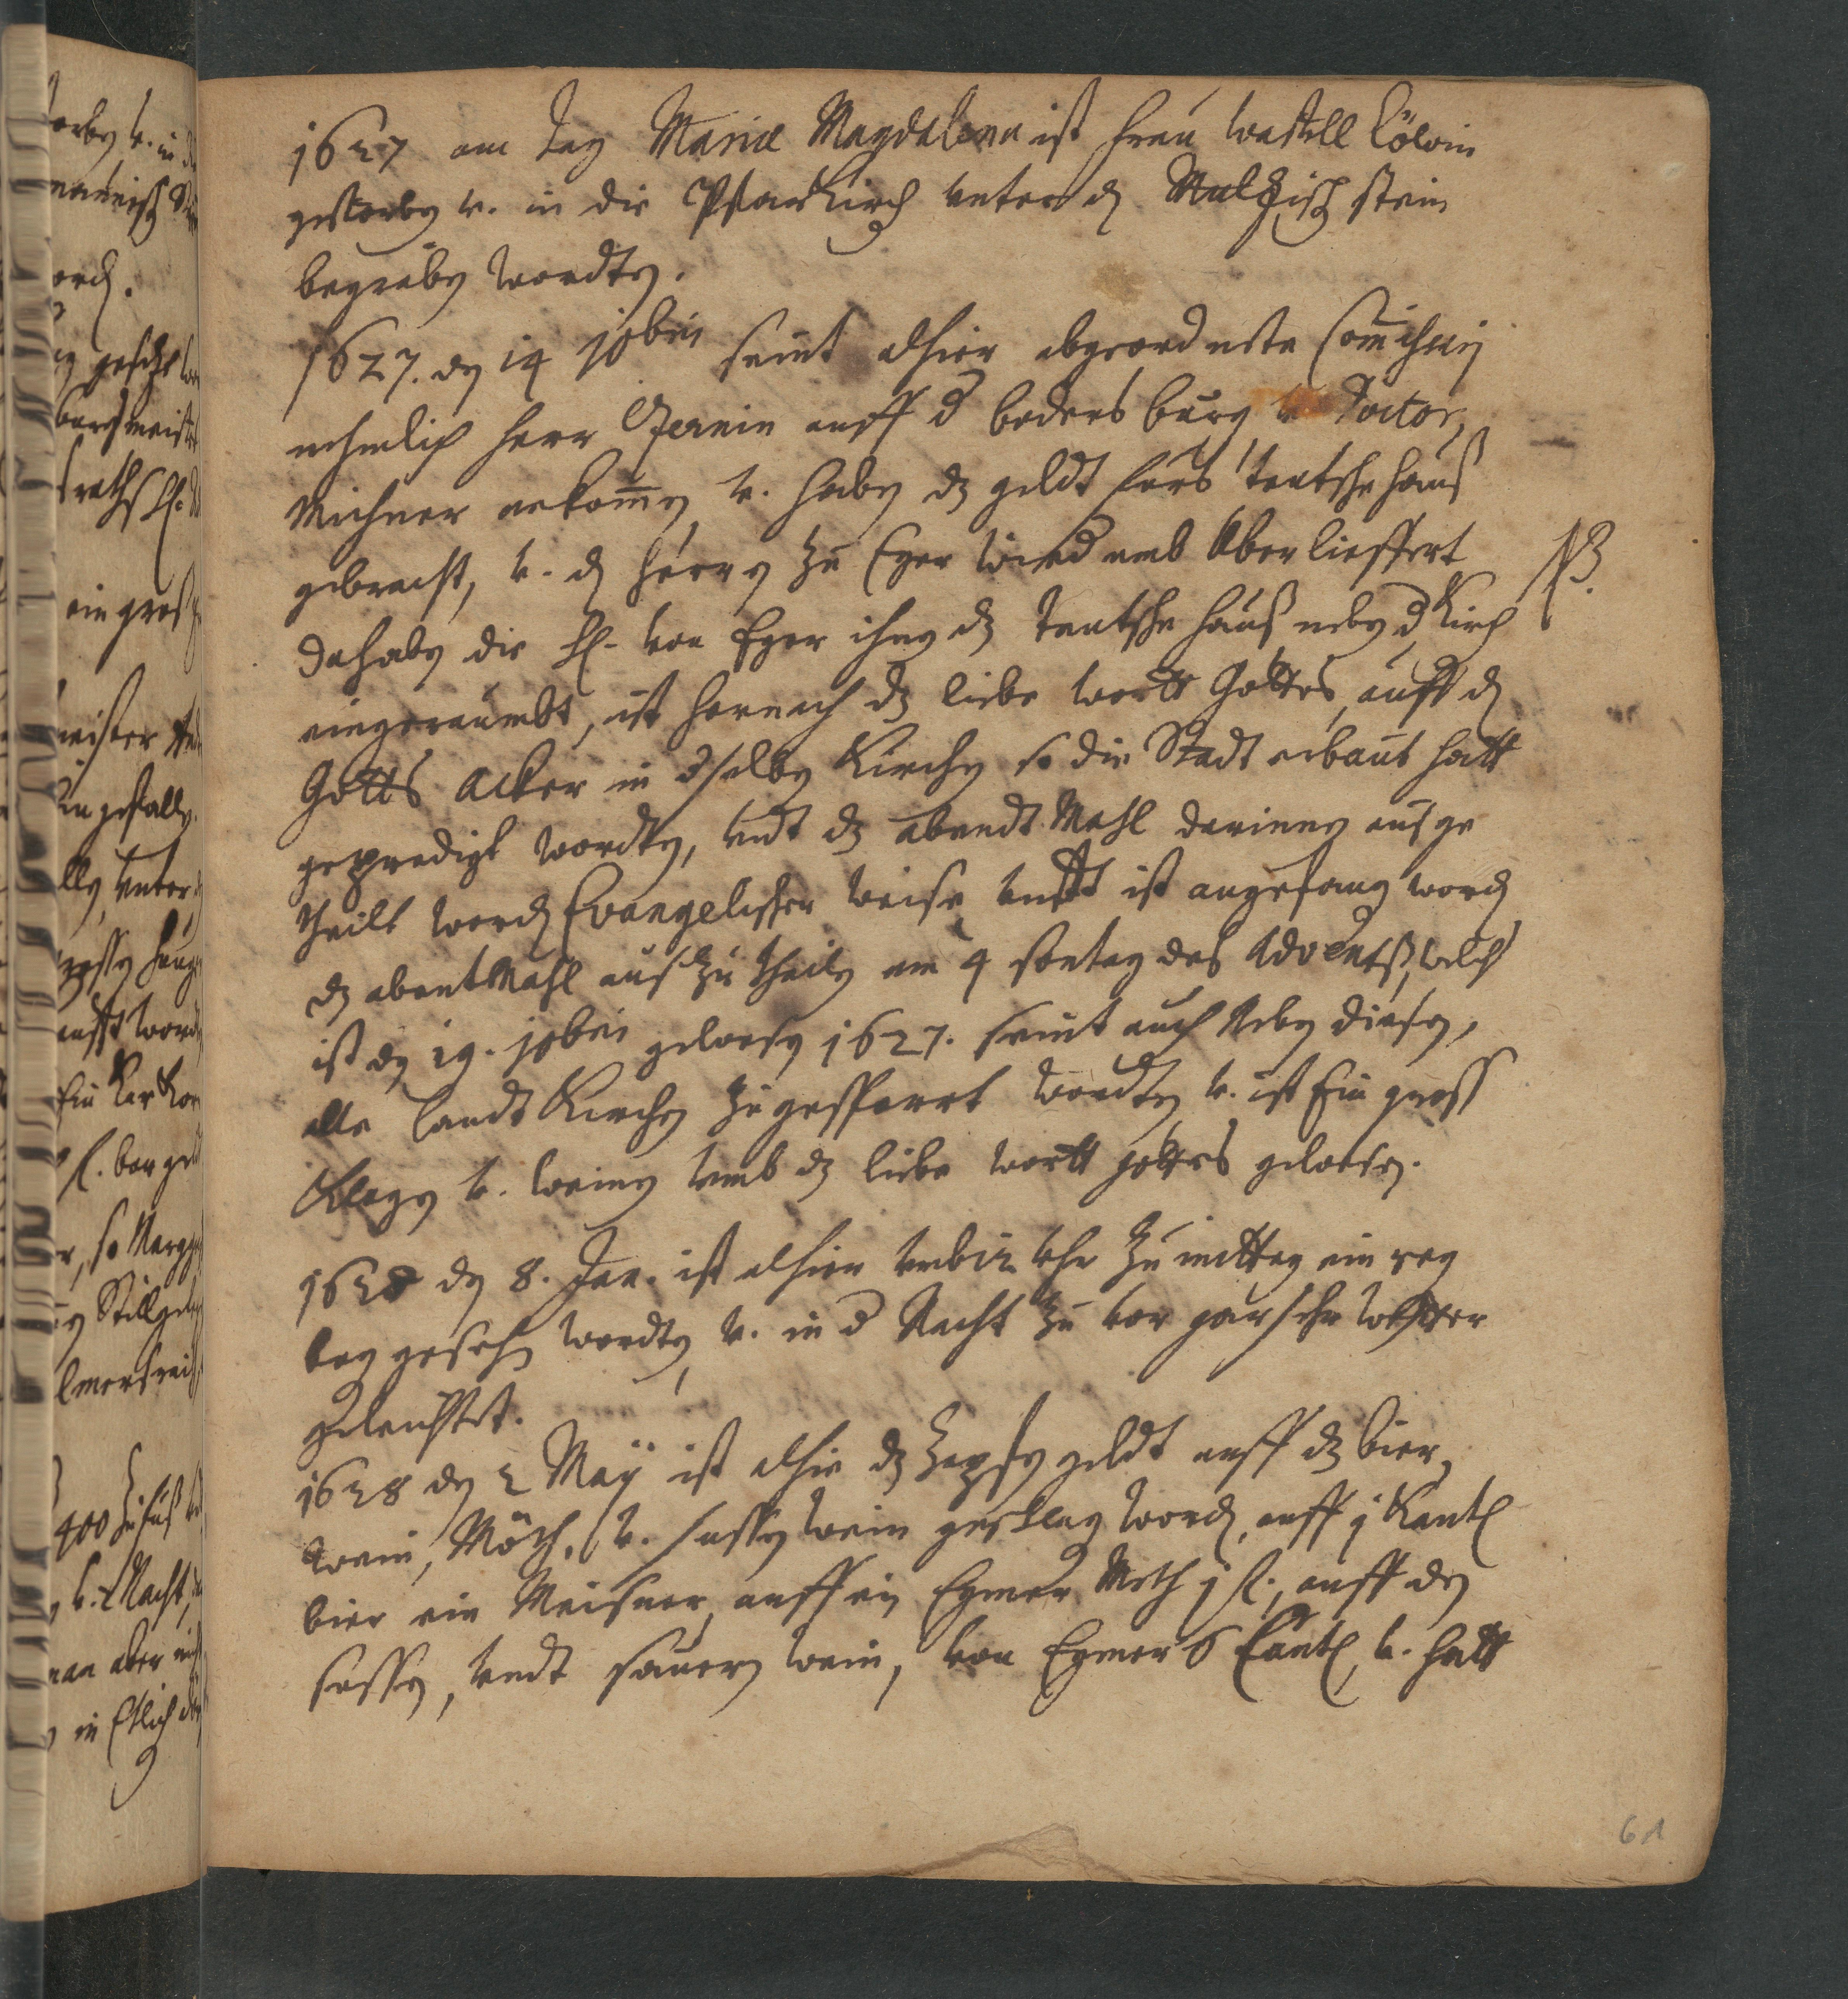 1627 am tag Mariæ Magdalena ist frau wastell Cölvin
gestorbn v. in die Pfarkirch unter dz Mulzisch stein
begrabn wordtn.
1627. dn 14 10bris seint alhier abgeordnete Commissarij
nehmlich herr Zernin auff d badersburg v. Doctor,
Michner ankomn, v. habn dz geldt fürs teutsche hauß
gebracht, v. dn herrn zu Eger wiedrumb uberlieffert
NB.
da habn die H. von Eger ihn dz teutsche hauß nebn d kirch
eingeraumbt, ist hernach dz liebe wortt Gottes, auff dn
Gotts Acker in dselbn Kirchn so die Stadt erbaut hatt
geprediget wordtn, undt dz abendt Mahl darinnen ausge
theilt wordn Evangelischer weise undt ist angefang wordn
dz abentmahl aus zu theiln am 4 sontag des Advents, welch
ist dn 19. 10bris gewesn 1627. seint auch nebn diesn,
alle landt Kirchn zugesperrt wordtn, v. ist Ein gross
Klagn v. weinn umb dz liebe wortt gottes gewesn.
1628 dn 8. Jan. ist alhier umb 12 uhr zu mittag ein reg
bog gesehn wordtn, v. in d Nacht zu vor gar sehr wetter
geleuchtet.
1628 dn 2 Maÿ ist alhie dz Zapfn geldt auff dz bier,
wein, Möth, v. sussn wein geschlagn wordn, auff j Kantl
bier ein Meisner, auff ein Eymer Meth j fl., auff dn
sussn, undt sauern wein, von Eymer 6 Kantl, v. hatt
61